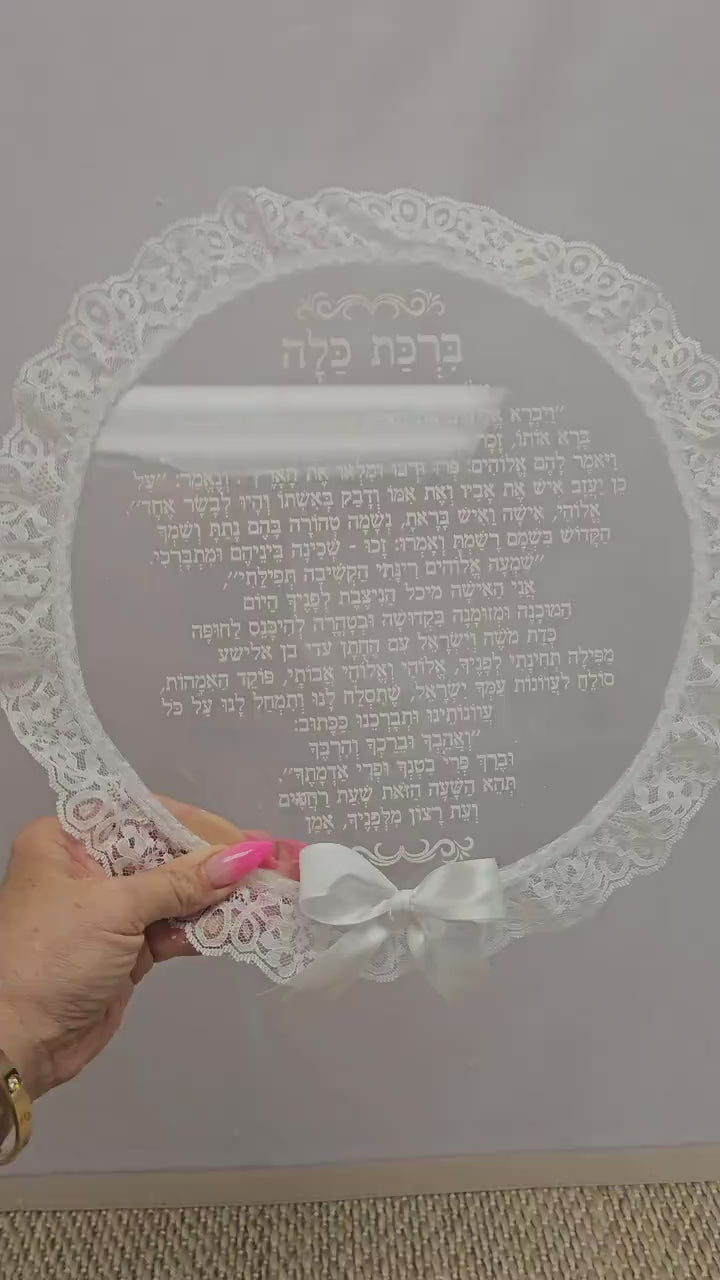 בִּרְכַּת כַּלָּה
"וַיִּבְרָא
בָּרָא אוֹתוֹ, זָכָר
וַיֹּאמֶר לָהֶם אֱלוֹהִים: פְּרוּ וּרְבוּ וּמִלְאוּ אֶת הָאָרֶץ". וְנֶאֱמַר: "עַל
כֵּן יַעֲזָב אִישׁ אֶת אָבִיו וְאֶת אִמּוֹ וְדָבַק בְּאִשְׁתּוֹ וְהָיוּ לְבָשָׂר אֶחָד".
אֱלוֹהַי, אִישָּׁה וְאִישׁ בָּרָאתָ, נְשָׁמָה טְהוֹרָה בָּהֶם נָתַתָּ וְשִׁמְךָ
הַקָּדוֹשׁ בִּשְׁמָם רָשַׁמְתָּ וְאָמַרְתָּ: זָכוּ - שְׁכִינָה בֵּינֵיהֶם וּמִתְבָּרְכֵי.
"שִׁמְעָה אֱלוֹהִים רִינָּתִי הַקְשִׁיבָה תְּפִילָּתִי",
אֲנִי הָאִישָּׁה מיכל הַנִּיצֶּבֶת לְפָנֶיךָ הַיּוֹם
הַמּוּכָנָה וּמְזוּמָּנָה בִּקְדוּשָׁה וּבְטָהֳרָה לְהִיכָּנֵס לַחוּפָּה
כְּדַת מֹשֶׁה וְיִשְׂרָאֵל עִם הֶחָתָן עדי בן אלישע
מַפִּילָה תְּחִינָּתִי לְפָנֶיךָ, אֱלוֹהַי וֵאלוֹהֵי אֲבוֹתַי, פּוֹקֵד הָאִמָּהוֹת,
סוֹלֵחַ לַעֲווֹנוֹת עַמְּךָ יִשְׂרָאֵל, שֶׁתִּסְלַח לָנוּ וְתִמְחַל לָנוּ עַל כָּל
עֲווֹנוֹתֵינוּ וּתְבָרְכֵנוּ כַּכָּתוּב:
"וַאֲהֵבְךָ וּבֵרַכְךָ וְהִרְבֶּךָ
וּבֵרַךְ פְּרִי בִטְנְךָ וּפְרִי אַדְמָתֶךָ".
תְּהֵא הַשָּׁעָה הַזֹּאת שְׁעַת רַחֲמִים
וְעֵת רָצוֹן מִלְּפָנֶיךָ, אָמֵן